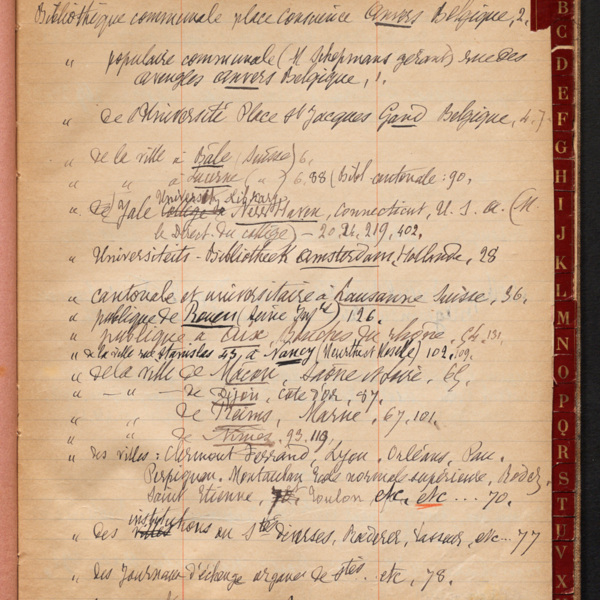 Bibliothèque communale place Conscience Anvers Belgique, 2.
" populaire communale (M. Schopmans gérant) rue des
aveugles Anvers Belgique, 1.
" de l'Université Place St Jacques Gand Belgique, 4.7
" de la ville à Bâle (Suisse) 6.
" " à Lucerne ( " ) 6.88 (Bibl. cantonale : 90.
University Library
" de Yale College à New Haven, Connecticut, U. S. A. (M.
le Direct. du collège) – 20.26.219, 402.
" Universiteits-Bibliotheek Amsterdam, Hollande, 28
" cantonale et universitaire à Lausanne Suisse, 36.
" publique de Rouen (Seine Infre) 126.
" publique à Aix, Bouches du Rhône, 54. 131.
" de la ville rue Stanislas 43, à Nancy (Meurthe et Moselle) 102, 109.
" de la ville de Macon, Saône et Loire, 65.
" — " — de Dijon, Côte d'Or, 87.
" " de Reims, Marne, 67, 101.
" " de Nîmes, 93. 119.
" des villes : Clermont Ferrand, Lyon, Orléans, Pau,
Perpignan, Montauban, Ecole normale supérieure, Rodez,
Saint Etienne, Toulon etc. etc ... 70.
institutions
" des villes ou Stés diverses, etc ... 77
" des Journaux d'échange organes de Stés, etc, 78.
B
C
D
E
F
G
H
I
J
K
L
M
N
O
P
Q
R
S
T
U
V
X